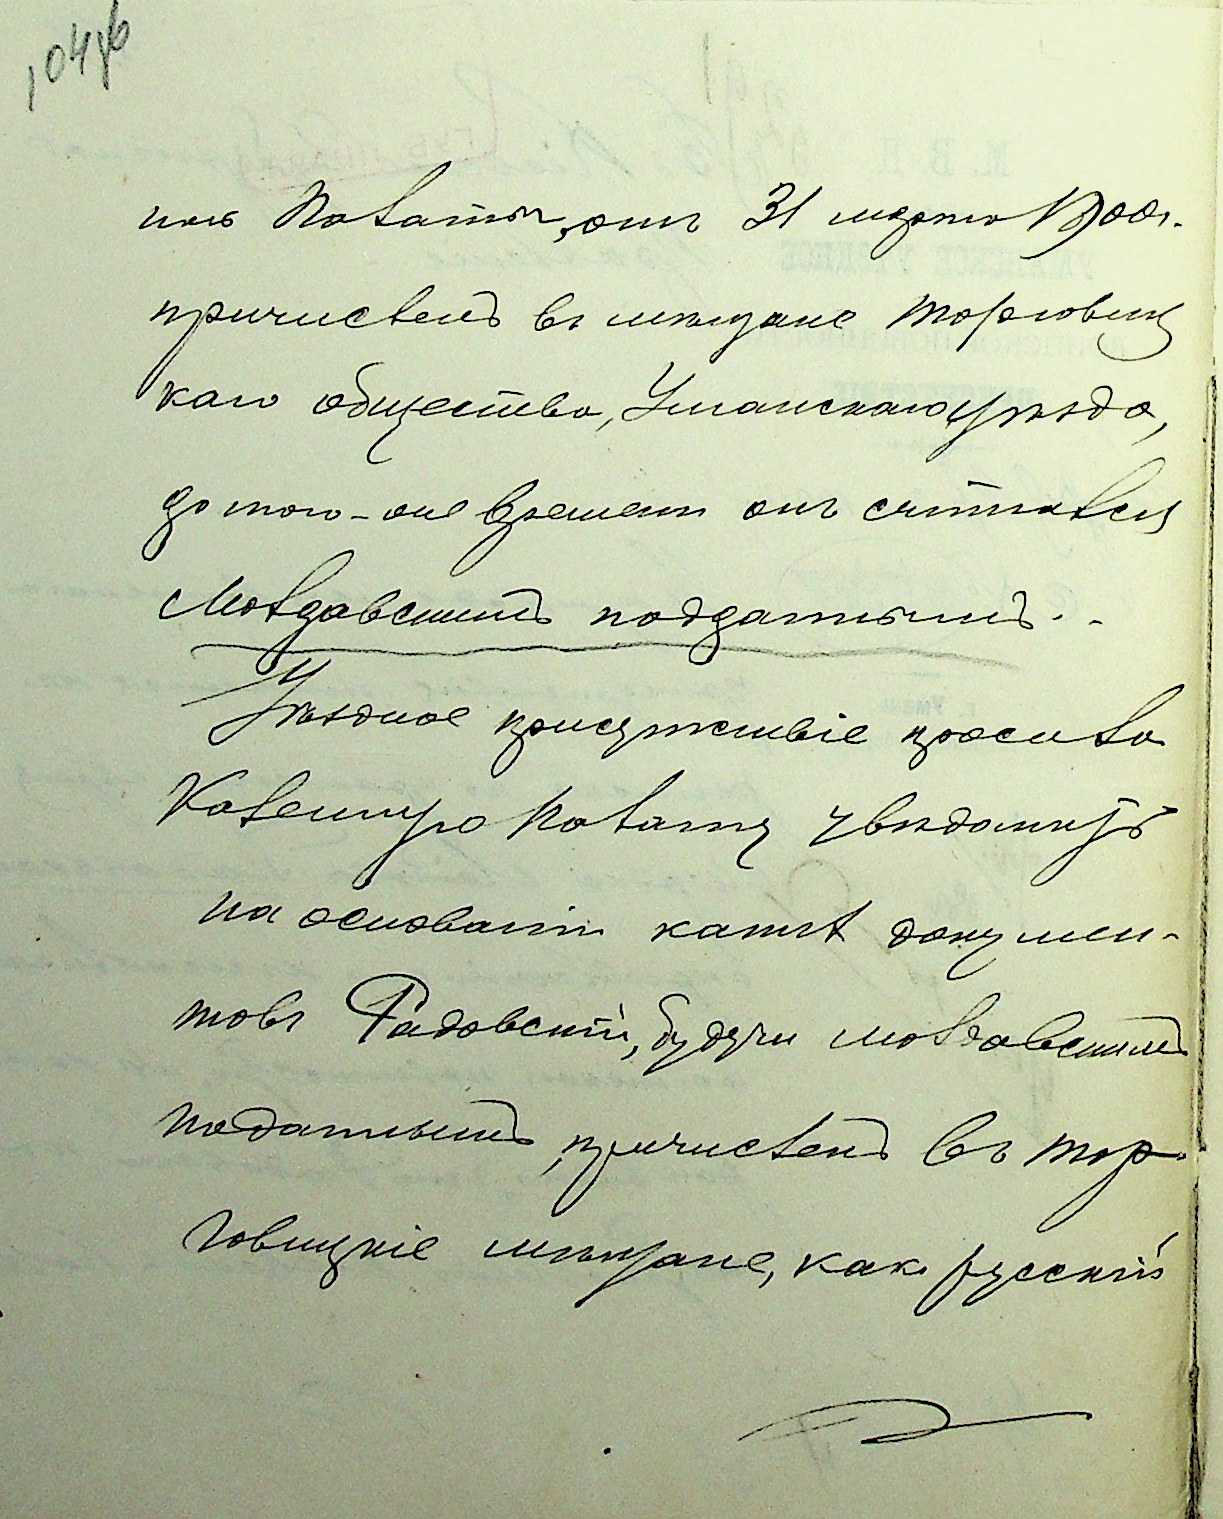 104 об
ной Палаты, онъ 31 марта 1900 г.
причисленъ въ мѣщане Торговиц
каго общества, Уманскаго уѣзда,
до того-же времени онъ считался
Молдавскимъ подданнымъ.
Уѣздное присутствіе просило
Казенную Палату увѣдомить
на основаніи какихъ докумен-
товъ Радовскій, будучи молдавскимъ
подданнымъ, причисленъ въ тор-
говицкіе мѣщане, какъ русскій